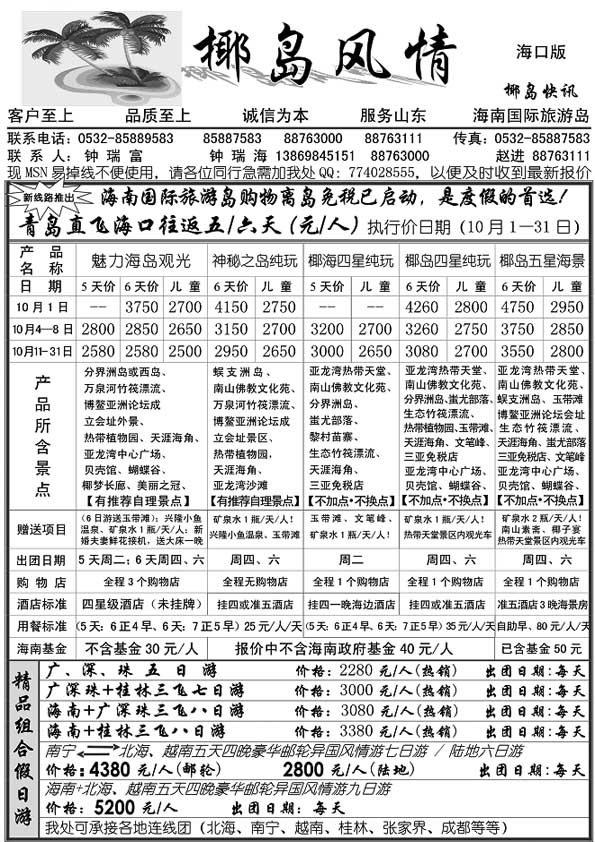 椰岛风情
海口版
椰岛快讯
客户至上 品质至上 诚信为本 服务山东 海南国际旅游岛
联系电话：0532-85889583 85887583 88763000 88763111 传真：0532-85887583
联 系 人：钟 瑞 富 钟 瑞 海 13869845151 88763000 赵进 88763111
现MSN易掉线不便使用，请各位同行急需加我处QQ：774028555，以便及时收到最新报价
新线路推出 海南国际旅游岛购物离岛免税已启动，是度假的首选！
青岛直飞海口往返五/六天（元/人）执行价日期（10月1—31日）
产 品 名 称 魅力海岛观光 神秘之岛纯玩 椰海四星纯玩 椰岛四星纯玩 椰岛五星海景
日 期 5天价 6天价 儿 童 6天价 儿 童 5天价 儿 童 6天价 儿 童 6天价 儿 童
10月1日 -- 3750 2700 4150 2750 -- -- 4260 2800 4750 2950
10月4—8日 2800 2850 2650 3150 2700 3200 2700 3260 2750 3750 2850
10月11-31日 2580 2580 2500 2950 2650 3000 2650 3080 2700 3550 2800
产品所含景点
分界洲岛或西岛、
万泉河竹筏漂流、
博鳌亚洲论坛成
立会址外景、
热带植物园、天涯海角、
亚龙湾中心广场、
贝壳馆、蝴蝶谷、
椰梦长廊、美丽之冠、
【有推荐自理景点】
蜈支洲岛、
南山佛教文化苑、
万泉河竹筏漂流、
博鳌亚洲论坛成
立会址景区、
热带植物园、
天涯海角、
亚龙湾沙滩
【有推荐自理景点】
亚龙湾热带天堂、
南山佛教文化苑、
分界洲岛、
蚩尤部落、
黎村苗寨、
生态竹筏漂流、
天涯海角、
三亚免税店
【不加点·不换点】
亚龙湾热带天堂、
南山佛教文化苑、
分界洲岛、蚩尤部落、
生态竹筏漂流、
热带植物园、玉带滩、
天涯海角、文笔峰、
三亚免税店
亚龙湾中心广场、
贝壳馆、蝴蝶谷、
【不加点·不换点】
亚龙湾热带天堂、
南山佛教文化苑、
蜈支洲岛、玉带滩
博鳌亚洲论坛会址
生态竹筏漂流、
天涯海角、蚩尤部落
三亚免税店、文笔峰
亚龙湾中心广场、
贝壳馆、蝴蝶谷、
【不加点·不换点】
赠送项目
（6日游送玉带滩）；兴隆小鱼
温泉、矿泉水1瓶/天/人；新
婚夫妻鲜花接机，送大床一晚
矿泉水1瓶/天/人！
兴隆小鱼温泉、玉带滩
玉带滩、文笔峰、
矿泉水1瓶/天/人！
矿泉水1瓶/天/人！
热带天堂景区内观光车
矿泉水2瓶/天/人！
南山素斋、椰子宴
热带天堂景区内观光车
出团日期 5天周二；6天周四、六 周四、六 周二 周四、六 周四、六
购 物 店 全程3个购物店 全程无购物店 全程1个购物店 全程1个购物店 全程1个购物店
酒店标准 四星级酒店（未挂牌） 挂四或准五酒店 挂四一晚海边酒店 挂四或准五酒店 准五酒店3晚海景房
用餐标准 （5天：6正4早、6天：7正5早）25元/人/天 （5天：6正4早、6天：7正5早）35元/人/天 自助早、80元/人/天
海南基金 不含基金30元/人 报价中不含海南政府基金40元/人 已含基金50元
精品组合假日游
广、深、珠 五 日 游 价格：2280元/人（热销） 出团日期：每天
广深珠+桂林三飞七日游 价格：3000元/人（热销） 出团日期：每天
海南+广深珠三飞八日游 价格：3080元/人（热销） 出团日期：每天
海南+桂林三飞八日游 价格：3380元/人（热销） 出团日期：每天
南宁 北海、越南五天四晚豪华邮轮异国风情游七日游 / 陆地六日游
价格：4380元/人（邮轮） 2800元/人（陆地） 出团日期：每天
海南+北海、越南五天四晚豪华邮轮异国风情游九日游
价格：5200元/人 出团日期：每天
我处可承接各地连线团（北海、南宁、越南、桂林、张家界、成都等等）